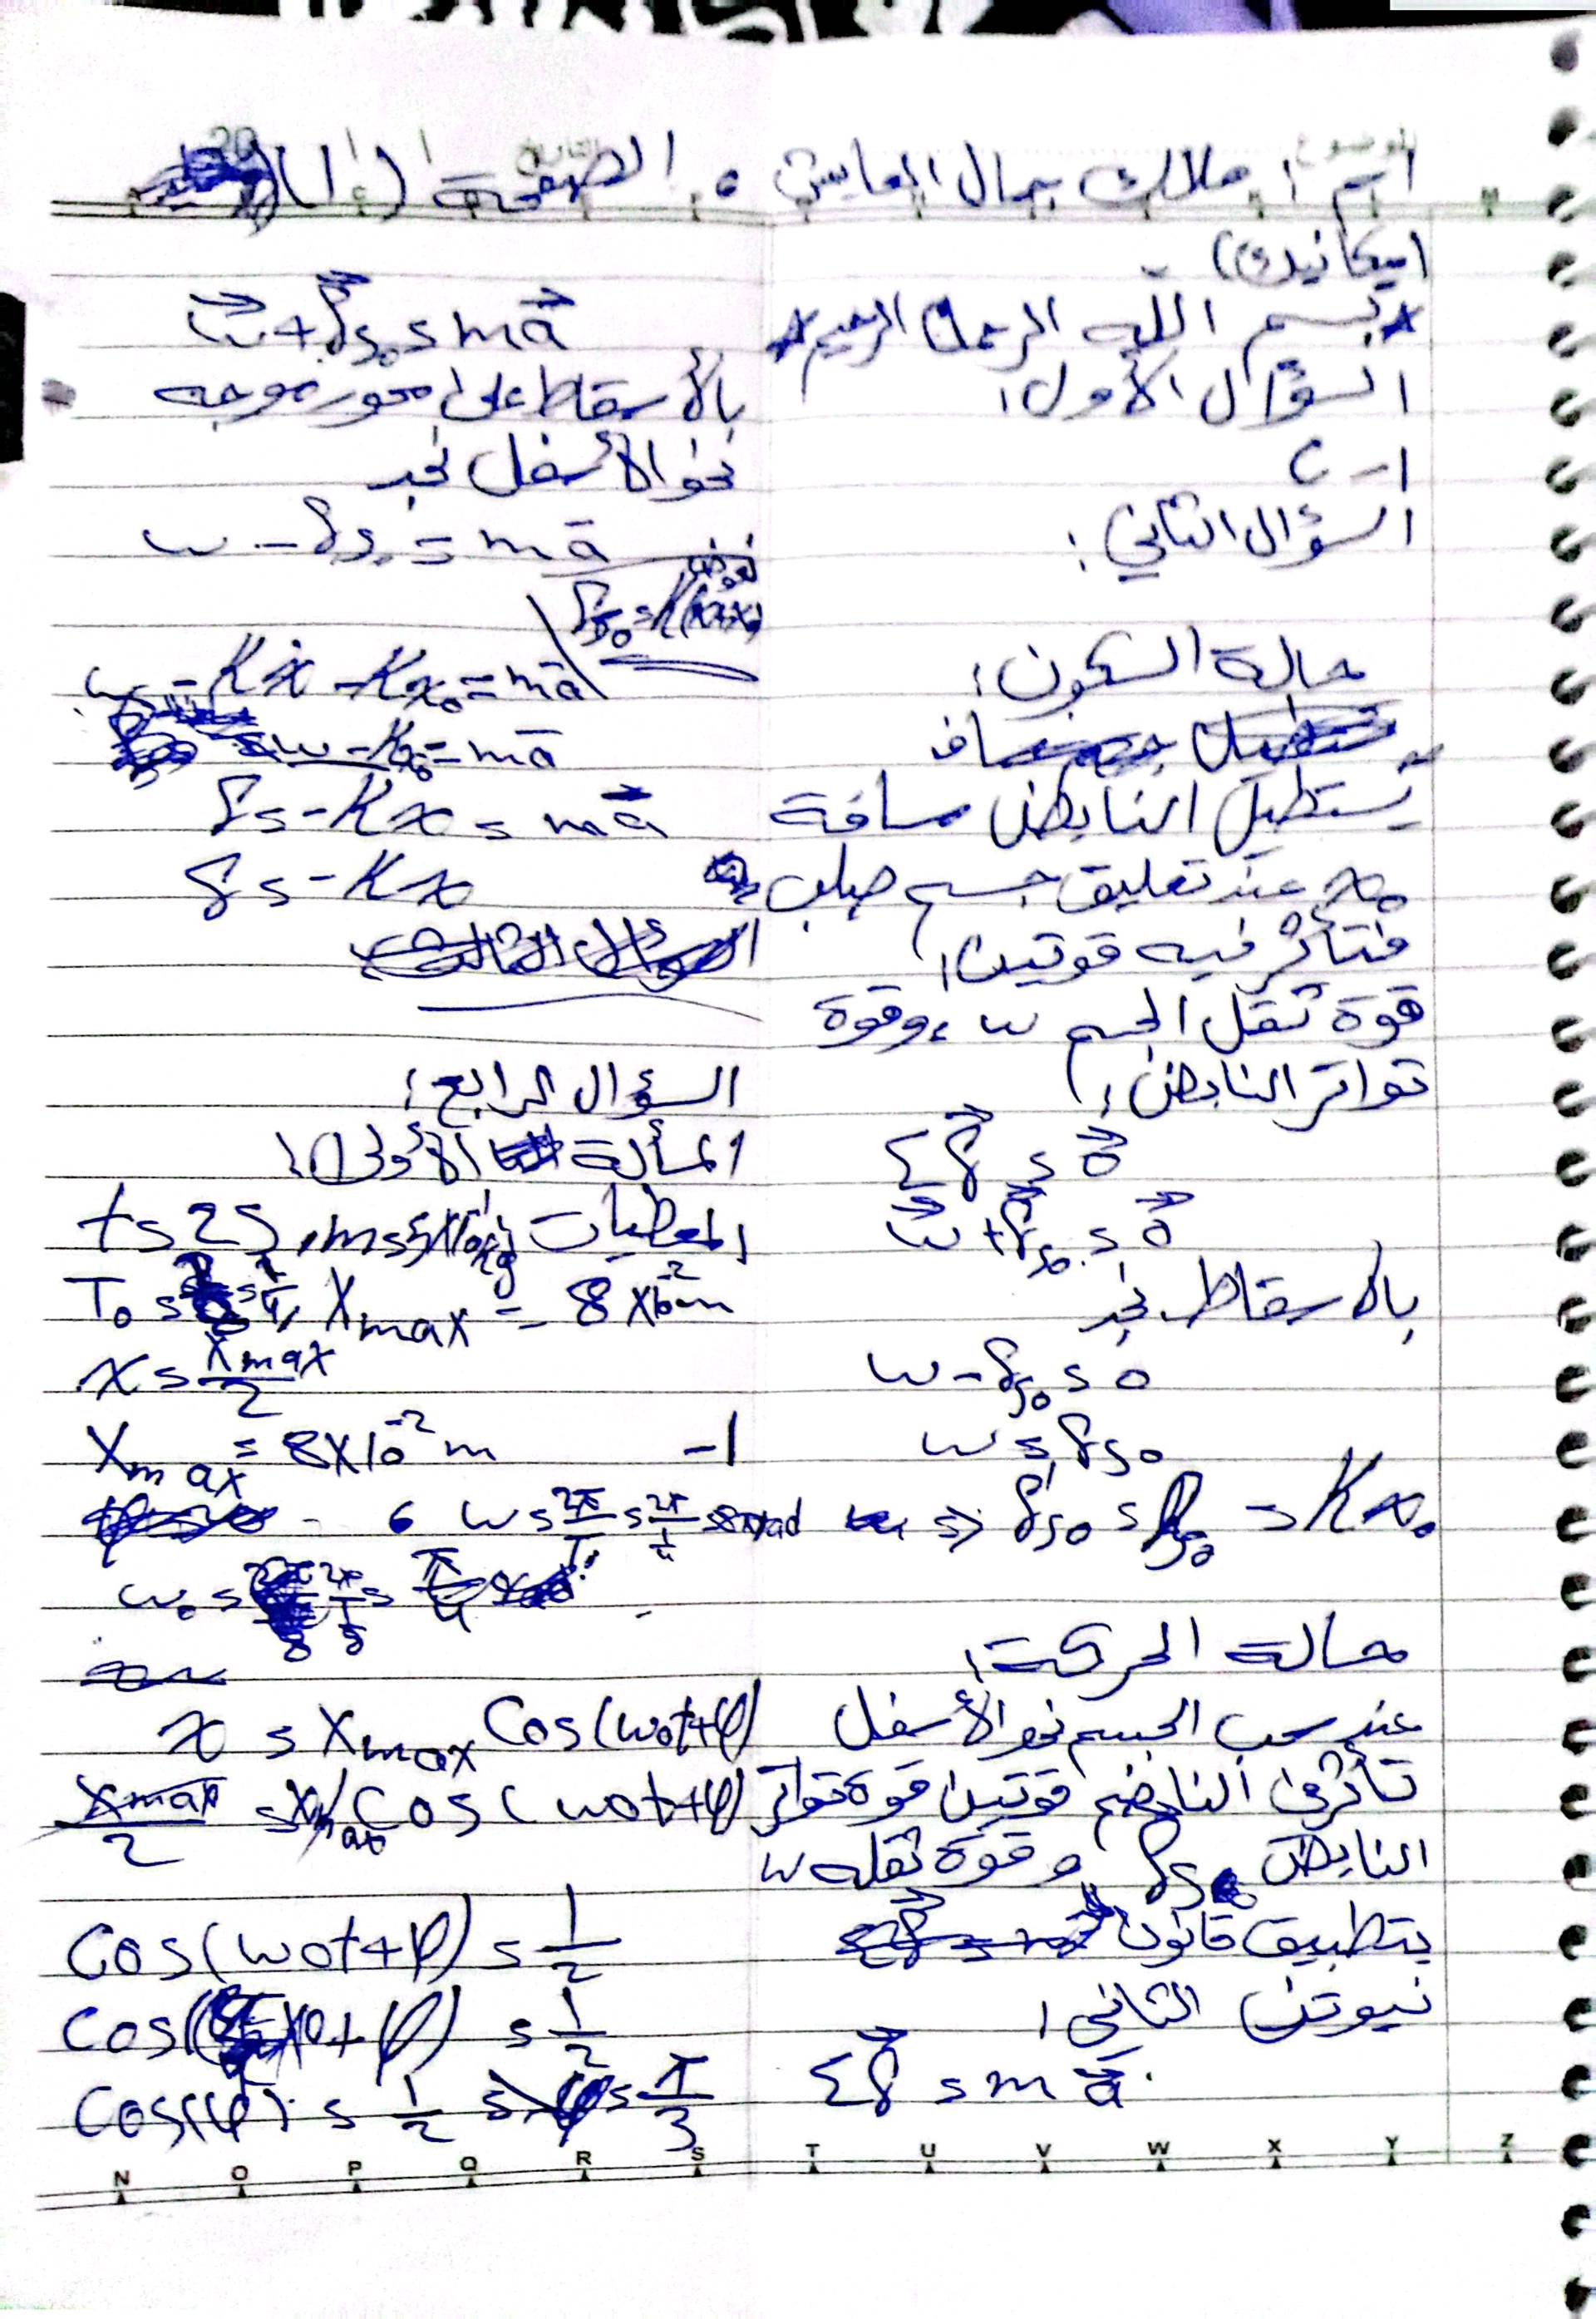 اسم : ملاك جمال العايش ، الصفحة (1)
(ميكانيك)
* بسم الله الرحمن الرحيم *
السؤال الأول :
1- C
السؤال الثاني :
حالة السكون :
يستطيل النابض مسافة
x₀ عند تعليق جسم صلب
فتأثر فيه قوتين :
قوة ثقل الجسم w ، وقوة
تواتر النابض :
Σf = 0
w + fs₀ = 0
بالاسقاط نجد
w - fs₀ = 0
w = fs₀
=> f's₀ = fs₀ = Kx₀
حالة الحركة :
عند سحب الجسم نحو الأسفل
تأثر في النابض قوتين قوة تواتر
النابض fs و قوة ثقله w
بتطبيق قانون
نيوتن الثاني :
Σf = ma
w + fs₀ = ma
بالأسقاط على محور موجه
نحو الأسفل نجد
w - fs₀ = ma
نعوض
w - Kx - Kx₀ = ma
f = -Kx = ma
f = -Kx
السؤال الرابع :
المسألة الأولى :
المعطيات t = 2s , m = 5x10⁻¹kg
x max = 8 x 10⁻² m
x = x max / 2
1- X max = 8x10⁻² m
w = 2π/T₀ = 2π/¼ = 8π rad
x = x max Cos(w₀t+φ)
x max / 2 = x max Cos(w₀t+φ)
Cos(w₀t+φ) = 1/2
Cos( x0+φ) = 1/2
Cos(φ) = 1/2 => φ = π/3
N O P Q R S T U V W X Y Z